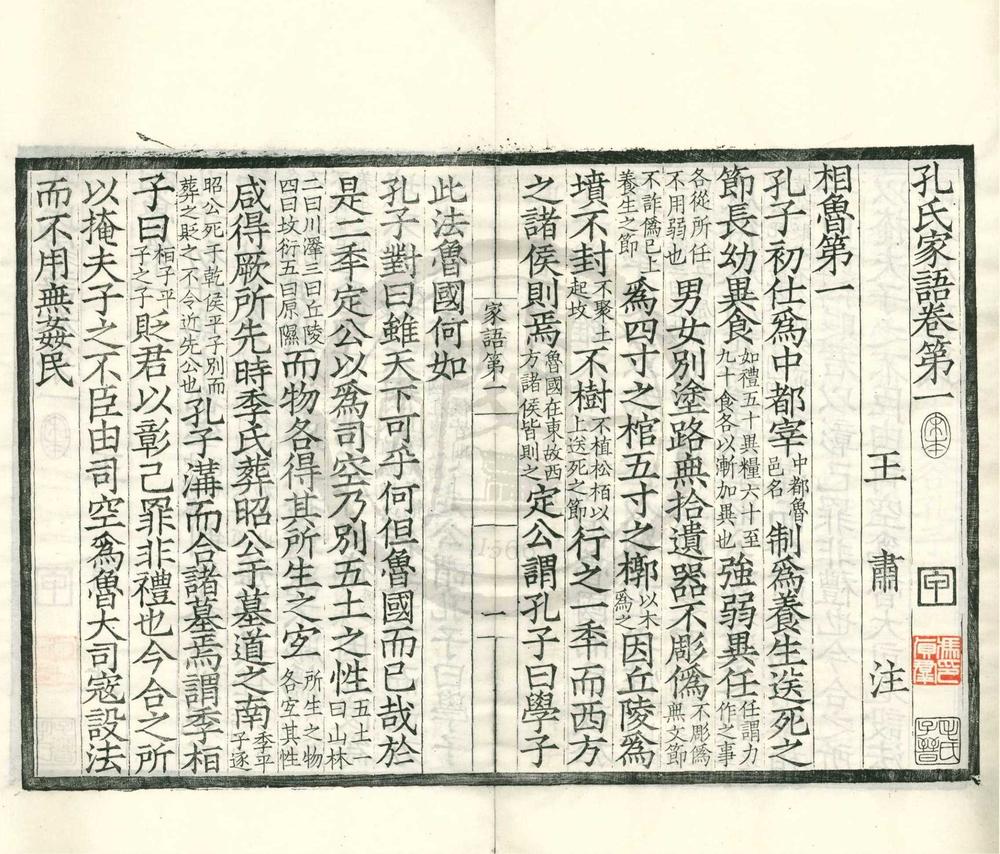 孔氏家語卷第一
王肅注
相魯第一
孔子初仕爲中都宰中都魯邑名制爲養生送死之
節長幼異食如禮五十異糧六十至九十食各以漸加異也強弱異任任謂力作之事
各從所任不用弱也男女別塗路無拾遺器不彫僞不彫僞無文節
不詐僞已上養生之節爲四寸之棺五寸之槨以木爲之因丘陵爲
墳不封不聚土起坟不樹不植松栢以上送死之節行之一秊而西方
之諸侯則焉魯國在東故西方諸侯皆則之定公謂孔子曰學子
家語第一
一
此法魯國何如
孔子對曰雖天下可乎何但魯國而已哉於
是二秊定公以爲司空乃別五土之性五土一曰山林
二曰川澤三曰丘陵四曰坟衍五曰原隰而物各得其所生之宐所生之物各宐其性
咸得厥所先時季氏葬昭公于墓道之南季平子逐
昭公死于乾侯平子別而葬之貶之不令近先公也孔子溝而合諸墓焉謂季桓
子曰桓子平子之子貶君以彰己罪非禮也今合之所
以掩夫子之不臣由司空爲魯大司寇設法
而不用無姦民